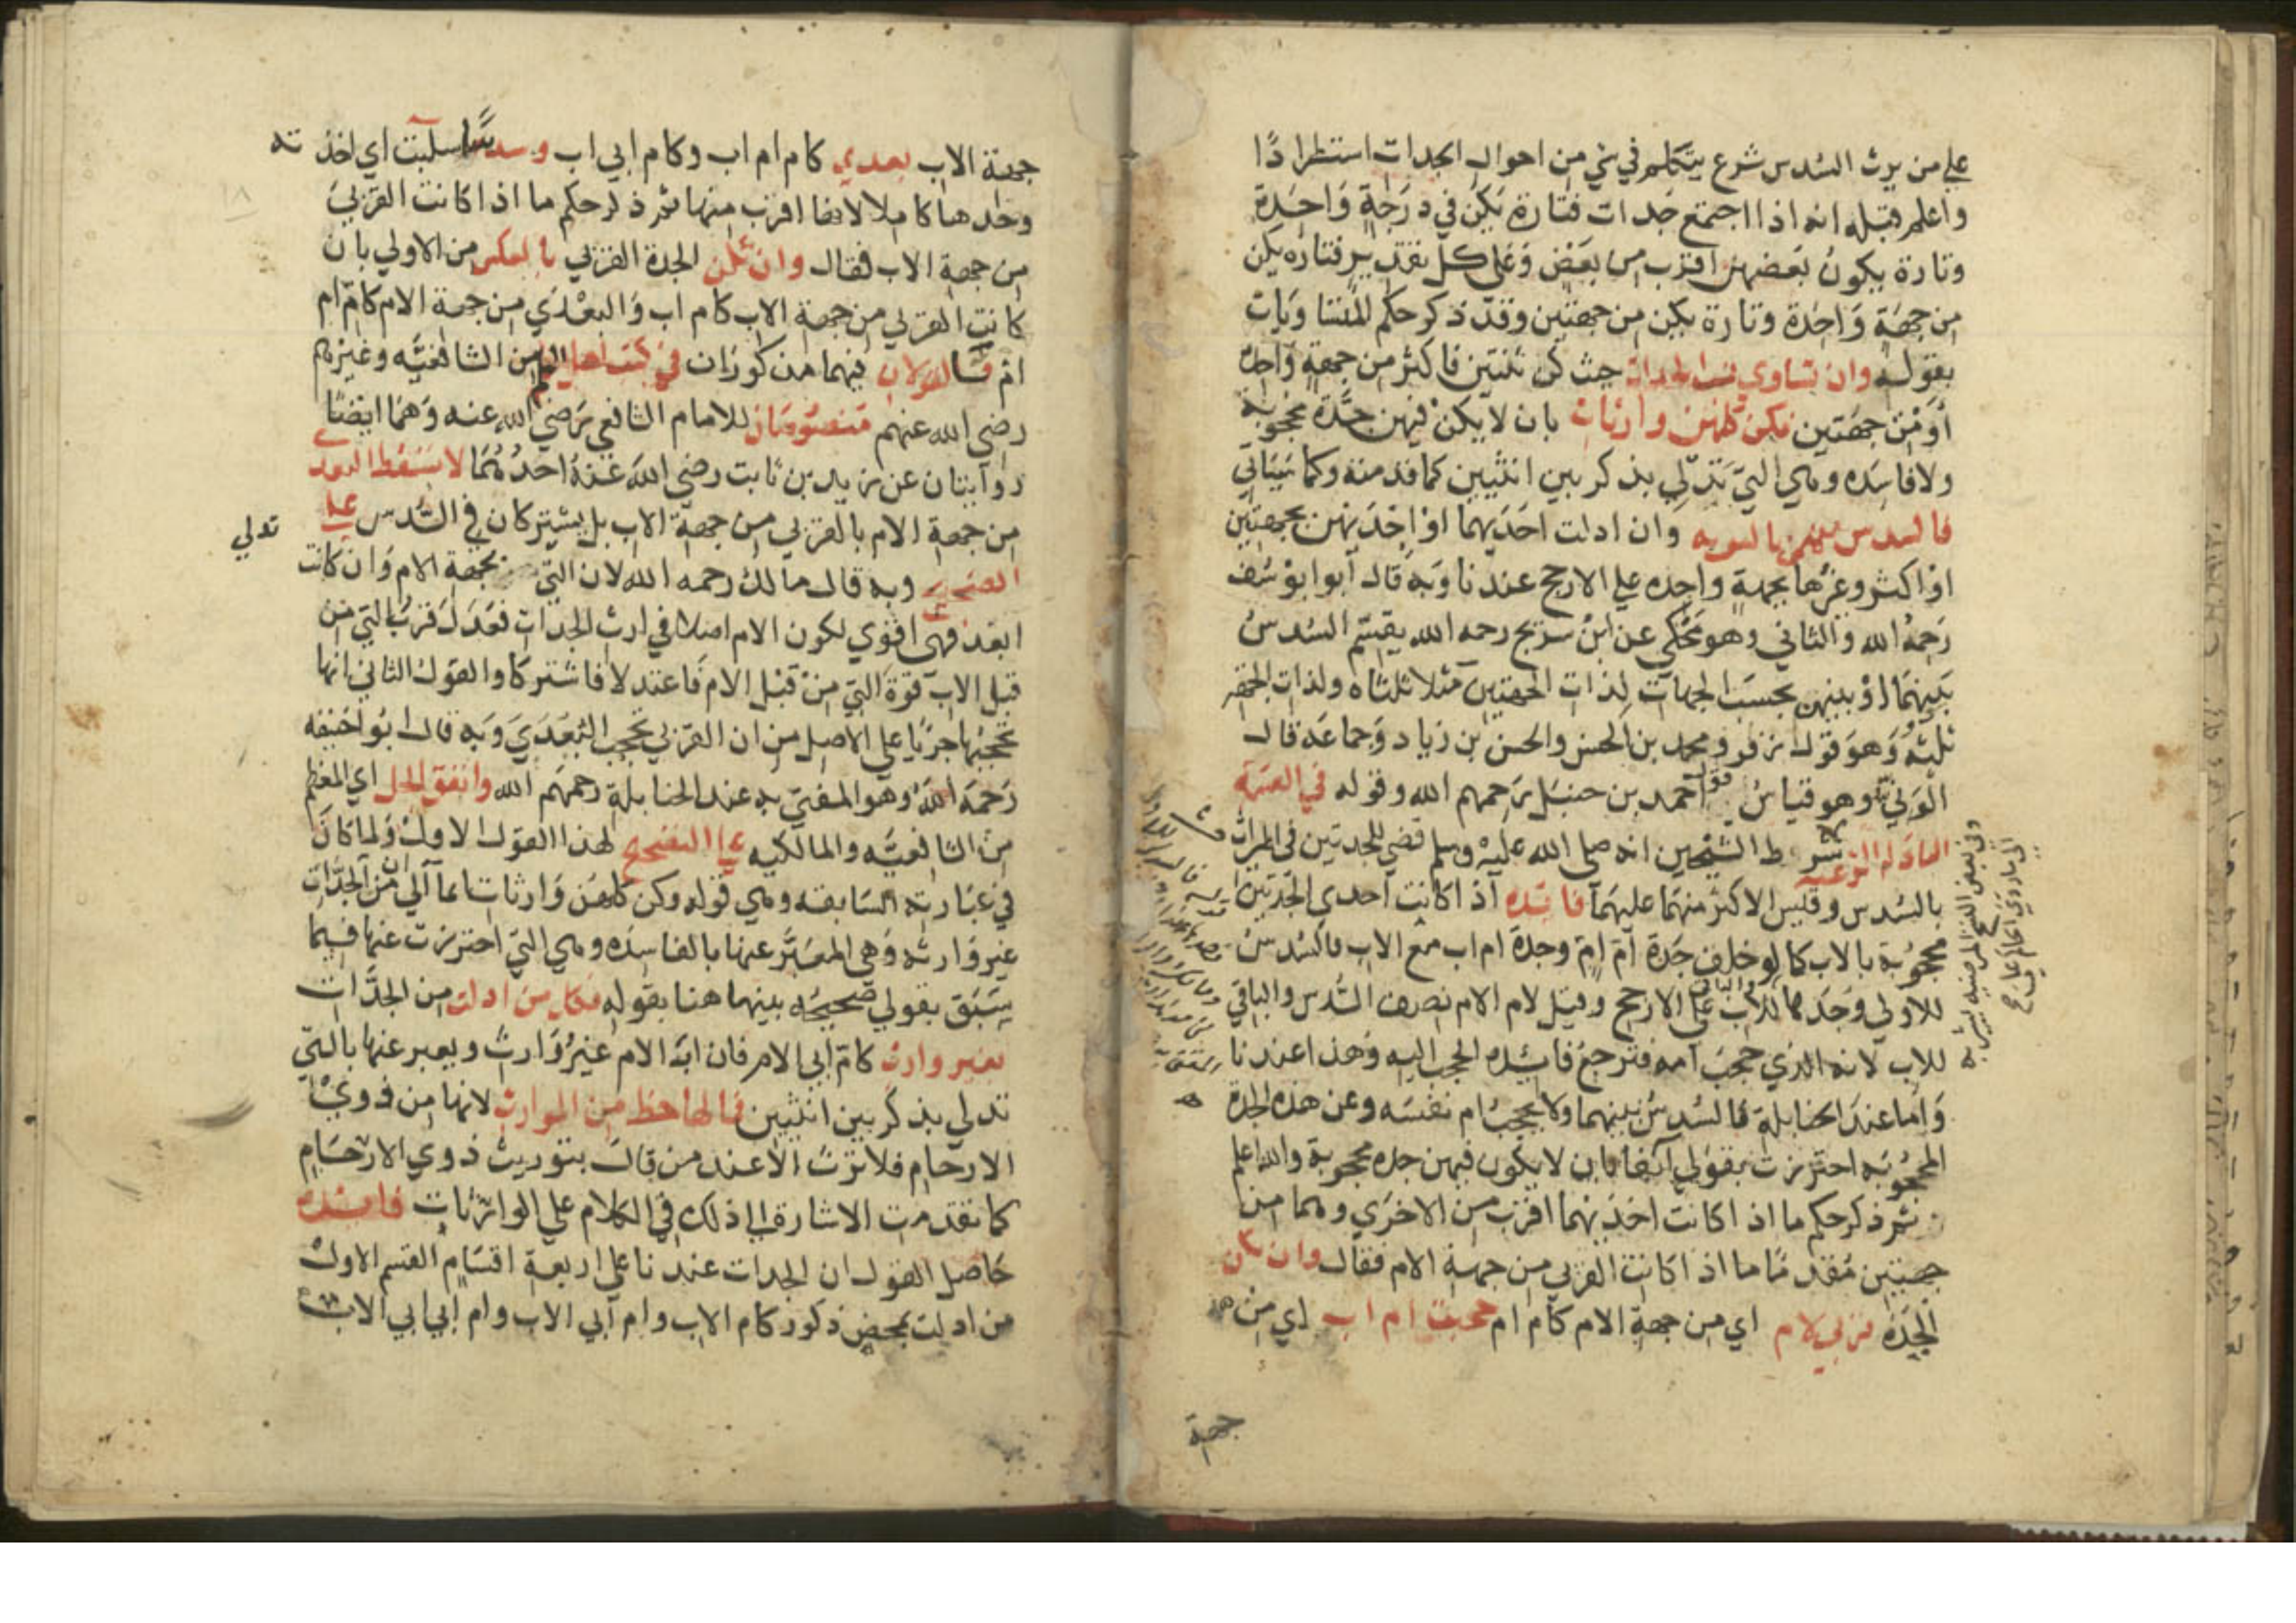 على من يرث السدس شرع يتكلم في شي من احوال الجدات استطرادًا
واعلم قبله انه اذا اجتمع جدات فتارة يكن في درجة واحدة
وتارة يكون بعضهن اقرب من بعض وعلى كل تقدير فتاره يكن
من جهة واحدة وتارة يكن من جهتين وقد ذكر حكم المتساويات
بقوله وان تساوي نسب الجدات حيث كن ثنتين فاكثر من جهة واحدة
او من جهتين فكن كلهن وارثات بان لا يكن فيهن جدة محجوبة
ولا فاسده وهي التي تدلي بذكر بين انثيين كما قدمته وكما سياتي
فالسدس بينهن بالسويه وان ادلت احديهما او احديهن بجهتين
او اكثر وغيرها بجهة واحده على الارجح عندنا وبه قال ابو ابو سف
رحمه الله والثاني وهو محكي عن ابن سريج رحمه الله يقسم السدس
بينهما او بينهن بحسب الجهات لذات الجهتين مثلا ثلثاه ولذات الجهه
ثلثه وهو قول زفر ومحمد بن الحسن والحسن بن زياد وجماعه قال
الوني وهو قياس قول احمد بن حنبل رحمهم الله وقوله في القسمة
العادلة الشرعيه شرط الشيخين انه صلى الله عليه وسلم قضى للجدتين في الميراث
بالسدس وقيس الاكثر منهما عليهما فائده اذا كانت احدي الجدتين
محجوبة بالاب كما لو خلف جدة ام ام وجدة ام اب مع الاب فالسدس
للاولى وحدها والباقي للاب على الارجح وقيل لام الام نصف السدس والباقي
للاب لانه الذي حجب امه فترجع فائده الحجب اليه وهذا عندنا
واما عند الحنابلة فالسدس بينهما ولا يحجب ام نفسه وعن هذه الجدة
المحجوبه احترزت بقولي ايضا بان لا يكون فيهن جده محجوبة والله اعلم
ثم ذكر حكم ما اذا كانت احديهما اقرب من الاخرى وهما من
جهتين مقدما ما اذا كانت القربي من جهة الام فقال وان تكن
الجدة قربي لام اي من جهة الام كام ام حجبت ام اب اي من
جهة
جهة الاب بعدي كام ام اب وكام ابي اب وسدسا سلبت اي اخذته
وحدها كاملا لانها اقرب منها ثم ذكر حكم ما اذا كانت القربي
من جهة الاب فقال وان تكن الجدة القربي بالعكس من الاولي بان
كانت القربي من جهة الاب كام اب والبعدي من جهة الام كام ام
ام فالقولان فيهما مذكوران في كتب اهل العلم من الشافعيه وغيرهم
رضي الله عنهم منصوصان للامام الشافعي رضي الله عنه وهما ايضا
روايتان عن زيد بن ثابت رضي الله عنه احدهما لا تسقط البعدى
من جهة الام بالقربي من جهة الاب بل يشتركان في السدس على
الصحيح وبه قال مالك رحمه الله لان التي تدلي بجهة الام وان كانت
ابعد فهي اقوي لكون الام اصلا في ارث الجدات فعدل قرب التي من
قبل الاب قوة التي من قبل الام فاعتدلا فاشتركا والقول الثاني انها
تحجبها جريًا على الاصل من ان القربي تحجب البعدي وبه قال ابو حنيفه
رحمه الله وهو المفتي به عند الحنابلة رحمهم الله واتفق الجل اي المعظم
من الشافعيه والمالكيه على التصحيح لهذا القول الاول ولما كان
في عبارته السابقه وهي قوله وكن كلهن وارثات ايما الى ان من الجدات
غير وارثه وهي المعبر عنها بالفاسده وهي التي احترزت عنها فيما
سبق بقولي صحيحه بينهما هنا بقوله فكل من ادلت من الجدات
بغير وارث كام ابي الام فان اب الام غير وارث ويعبر عنها بالتي
تدلي بذكر بين انثيين فما لها حظ من الموارث لانها من ذوي
الارحام فلا ترث الا عند من قال بتوريث ذوي الارحام
كما تقدمت الاشارة الى ذلك في الكلام على الوارثات فائده
حاصل القول ان الجدات عندنا على اربعة اقسام القسم الاول
من ادلت بمحض ذكور كام الاب وام ابي الاب وام ابي ابي الاب